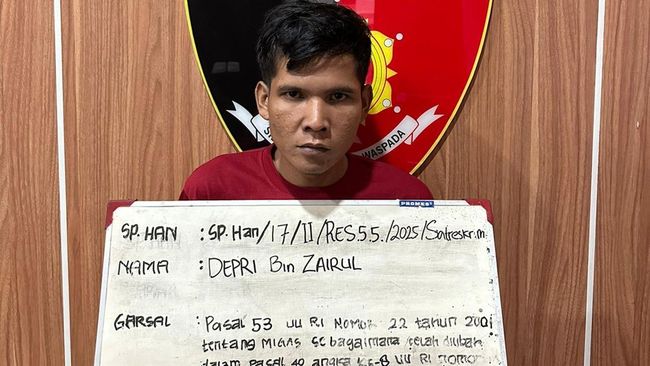 WASPADA
PROMES
SP. HAN : SP. Han/17/II/RES.5.5./2025/Satreskrim
NAMA : DEPRI Bin ZAIRUL
GARSAL : Pasal 53 UU RI NOMOR 22 tahun 2001
tentang MIGAS sebagaimana telah diubah
dalam pasal 40 angka KE-8 UU RI NOMOR